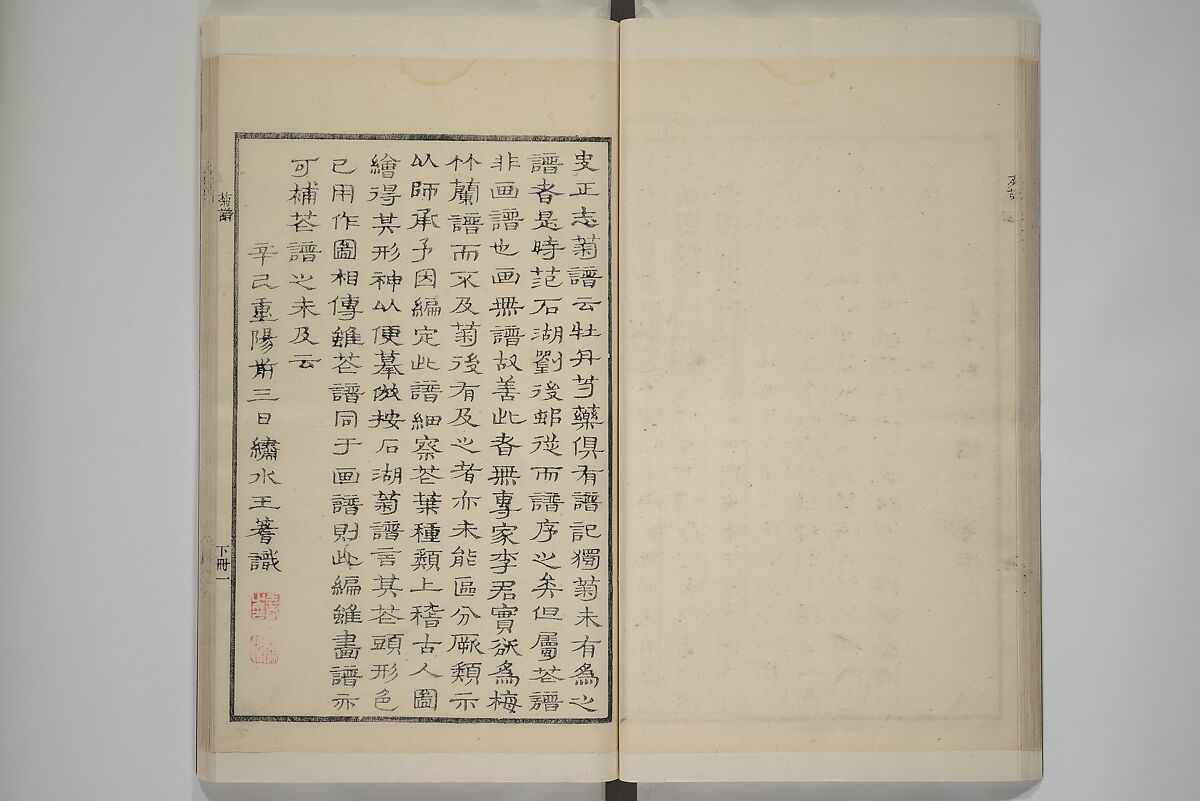 史正志菊譜云牡丹芍藥俱有譜記獨菊未有為之
譜者是時范石湖劉後邨從而譜序之矣但屬苍譜
非画譜也画無譜故善此者無專家李君實欲為梅
竹蘭譜而不及菊後有及之者亦未能區分厥類示
以師承予因編定此譜細察苍葉種類上稽古人圖
繪得其形神以便摹倣按石湖菊譜言其苍頭形色
已用作圖相傳雖苍譜同于画譜則此編雖畫譜亦
可補苍譜之未及云
辛巳重陽前三日繡水王蓍識
菊譜
下冊一